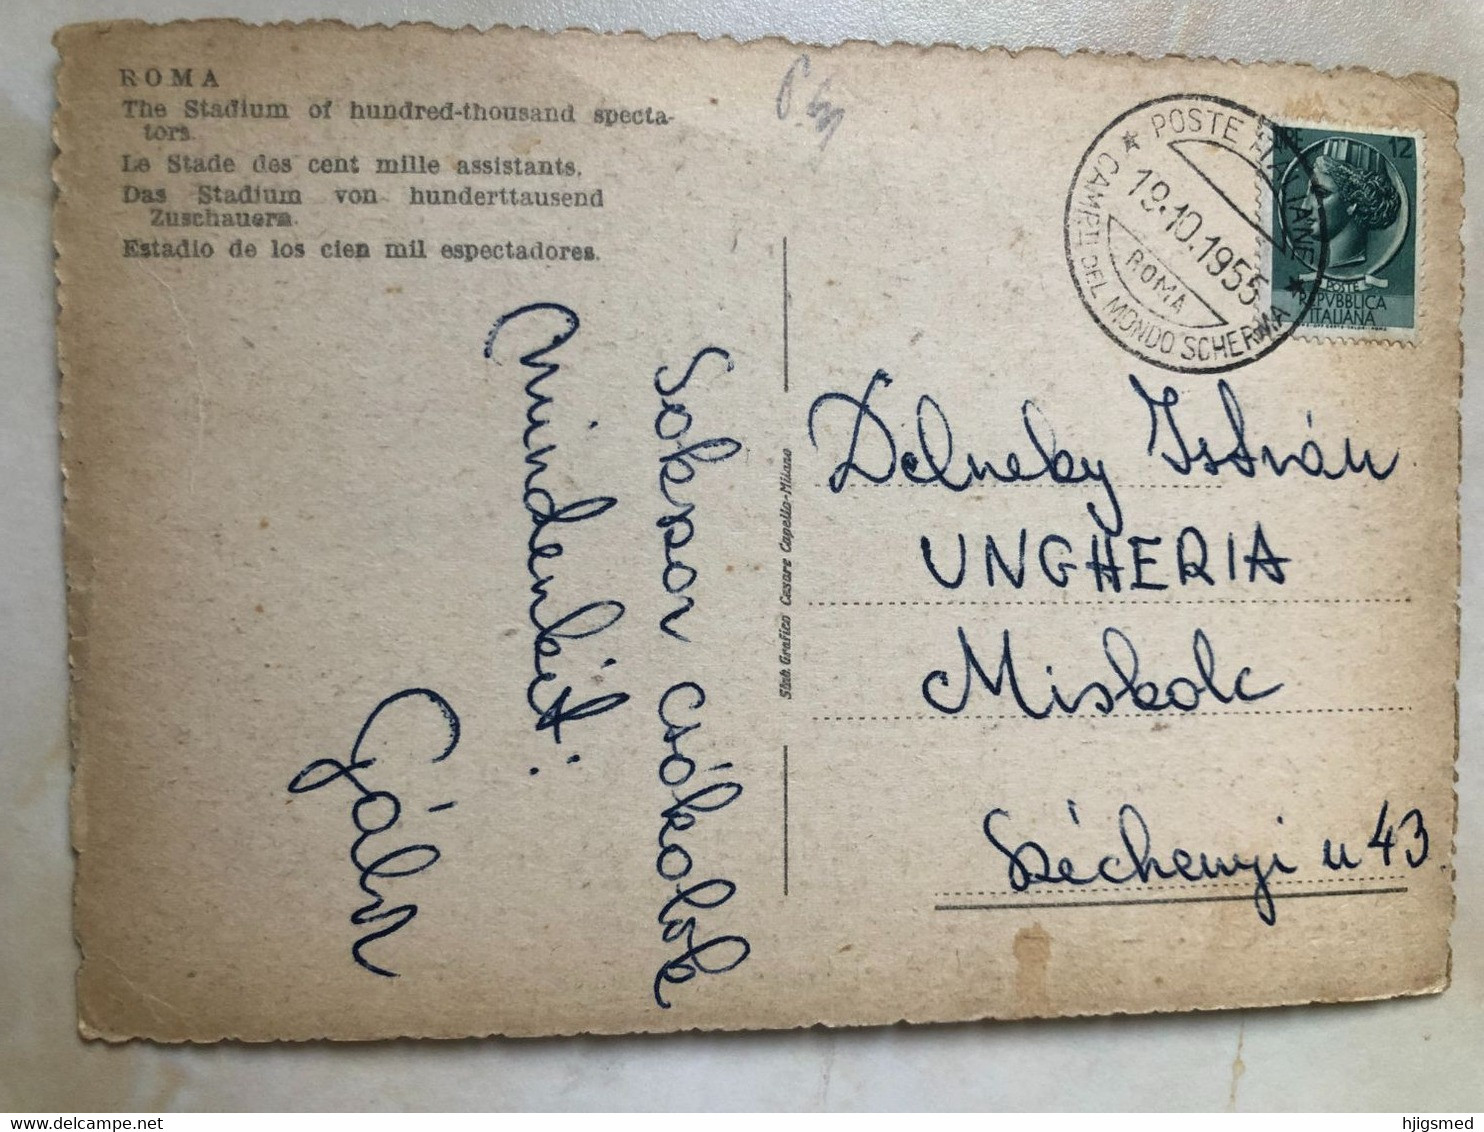 ROMA
The Stadium of hundred-thousand specta-
tors.
Le Stade des cent mille assistants.
Das Stadium von hunderttausend
Zuschauern.
Estadio de los cien mil espectadores.
Sokszor csókolok
mindenkit:
Stab. Grafico Cesare Capello-Milano
POSTE ITALIANE
19.10.1955
ROMA
CAMP.TI DEL MONDO SCHERMA
LIRE 12
POSTE
REPVBBLICA
ITALIANA
Delneky István
UNGHERIA
Miskolc
Széchenyi u 43.
www.delcampe.net
hjlgsmed